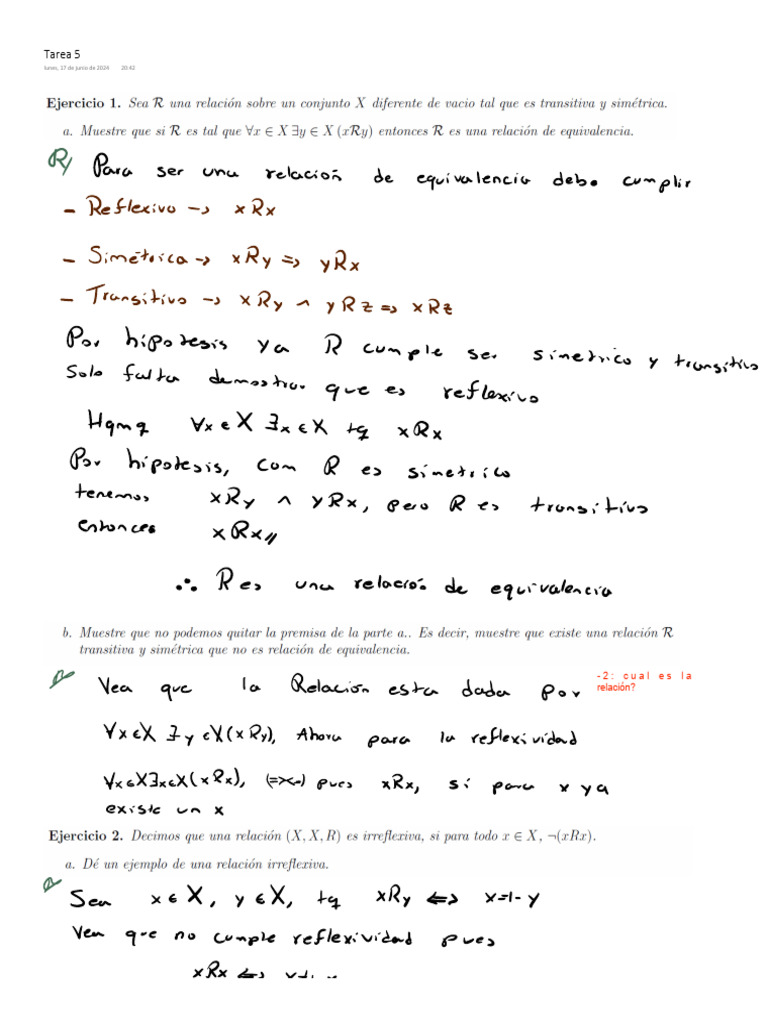 Tarea 5
lunes, 17 de junio de 2024 20:42
Ejercicio 1. Sea R una relación sobre un conjunto X diferente de vacio tal que es transitiva y simétrica.
a. Muestre que si R es tal que ∀x ∈ X ∃y ∈ X (xRy) entonces R es una relación de equivalencia.
R/ Para ser una relación de equivalencia debe cumplir
- Reflexivo -> xRx
- Simétrica -> xRy => yRx
- Transitivo -> xRy ∧ yRz => xRz
Por hipotesis ya R cumple ser simetrico y transitivo
Solo falta demostrar que es reflexivo
Hqmq ∀x ∈ X ∃x ∈ X tq xRx
Por hipotesis, com R es simetrico
tenemos xRy ∧ yRx, pero R es transitivo
entonces xRx//
∴ R es una relación de equivalencia
b. Muestre que no podemos quitar la premisa de la parte a.. Es decir, muestre que existe una relación R
transitiva y simétrica que no es relación de equivalencia.
Vea que la Relación esta dada por
-2: cual es la
relación?
∀x∈X ∃y∈X(xRy), Ahora para la reflexividad
∀x∈X∃x∈X(xRx), (=><=) pues xRx, si para x ya
existe un x
Ejercicio 2. Decimos que una relación (X, X, R) es irreflexiva, si para todo x ∈ X, ¬(xRx).
a. Dé un ejemplo de una relación irreflexiva.
Sea x ∈ X, y ∈ X, tq xRy <=> x=1-y
Vea que no cumple reflexividad pues
xRx <=>